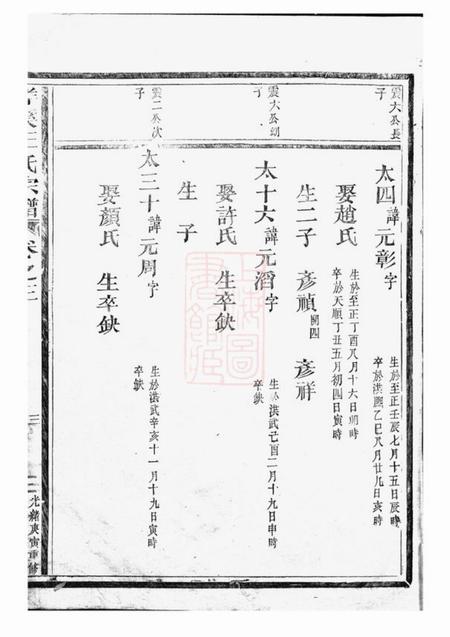 震大公長
子
太四諱元彰字
生於至正壬辰七月十五日辰時
卒於洪熙乙巳八月廿九日亥時
娶趙氏
生於至正丁酉八月十六日朝時
卒於天順丁丑五月初四日寅時
生二子 彥禎 開四 彥祥
震大公幼
子
太十六諱元滔字
生於洪武己酉二月十九日申時
卒缺
娶許氏 生卒缺
生 子
震二公次
子
太三十諱元周字
生於洪武辛亥十一月十九日寅時
卒缺
娶顏氏 生卒缺
氏宗譜 卷之二
三
光緒庚寅重修